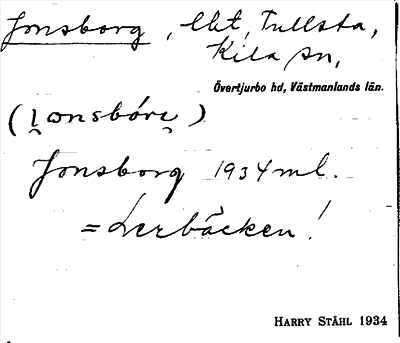 Jonsborg, lht, Tullsta,
Kila sn,
Övertjurbo hd, Västmanlands län.
(i̯ωnsbóri̯)
Jonsborg 1934 ml.
= Lerbäcken!
HARRY STÅHL 1934